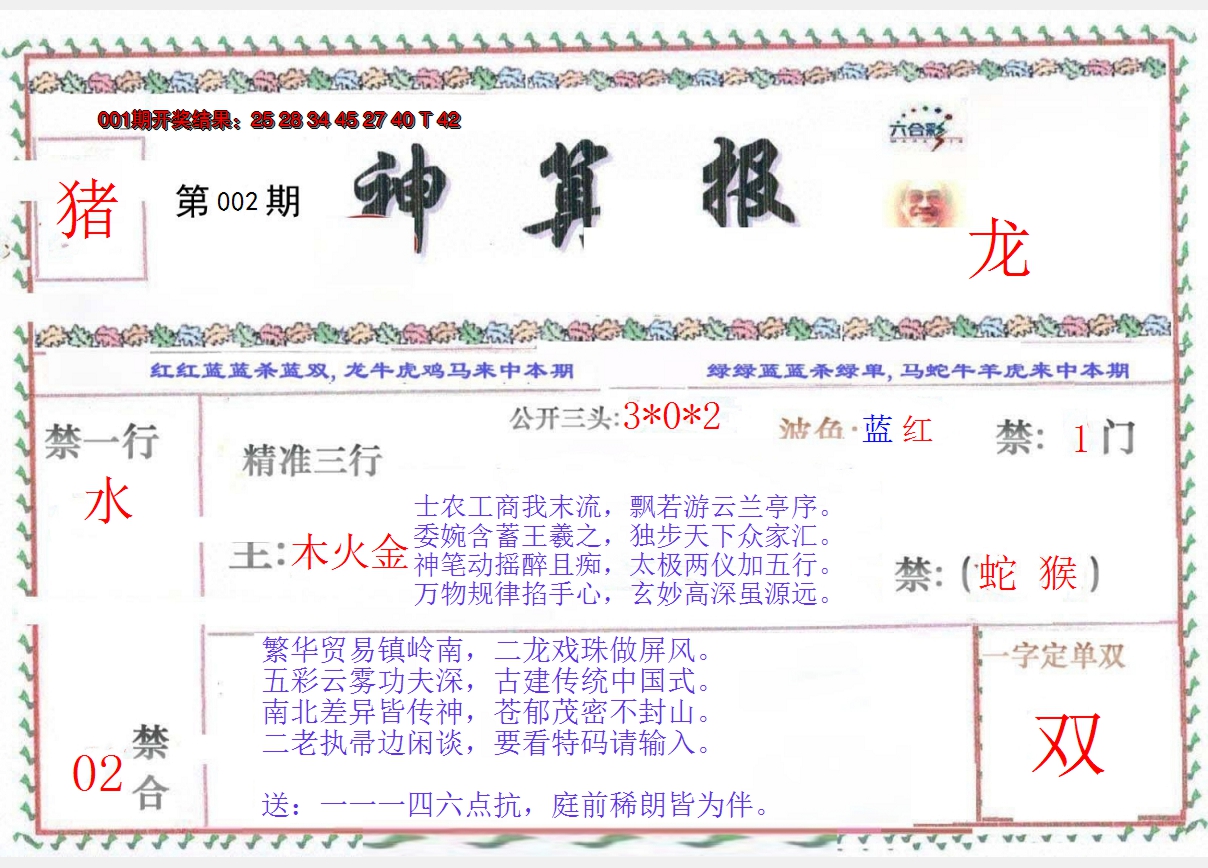 001期开奖结果：25 28 34 45 27 40 T 42
六合彩
猪
第 002 期
神 算 报
龙
红红蓝蓝杀蓝双,龙牛虎鸡马来中本期
绿绿蓝蓝杀绿单,马蛇牛羊虎来中本期
禁一行
水
精准三行
公开三头:3*0*2
波色:蓝 红
禁: 1 门
主:木火金
士农工商我末流，飘若游云兰亭序。
委婉含蓄王羲之，独步天下众家汇。
神笔动摇醉且痴，太极两仪加五行。
万物规律掐手心，玄妙高深虽源远。
禁:(蛇 猴)
繁华贸易镇岭南，二龙戏珠做屏风。
五彩云雾功夫深，古建传统中国式。
南北差异皆传神，苍郁茂密不封山。
二老执帚边闲谈，要看特码请输入。
送：一一一四六点抗，庭前稀朗皆为伴。
02
禁合
一字定单双
双